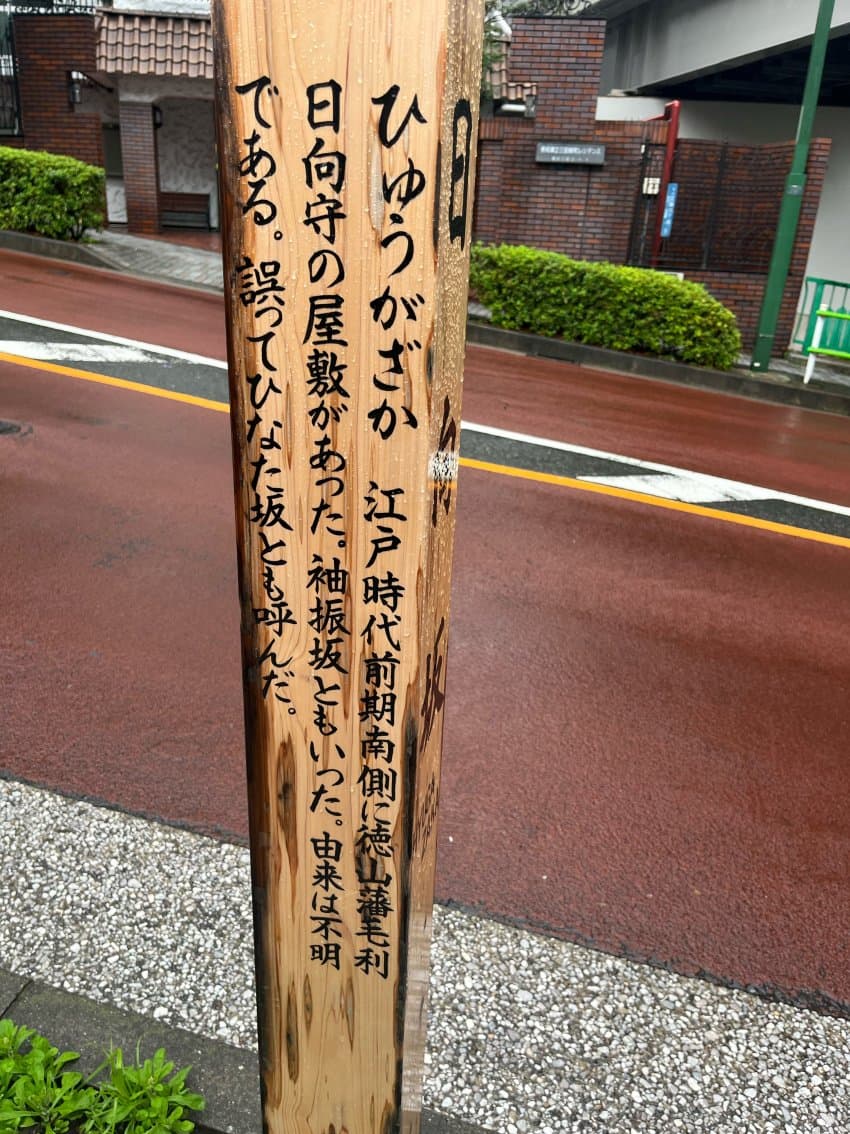 ひゅうがざか 江戸時代前期南側に徳山藩毛利
日向守の屋敷があった。袖振坂ともいった。由来は不明
である。誤ってひなた坂とも呼んだ。
日向坂